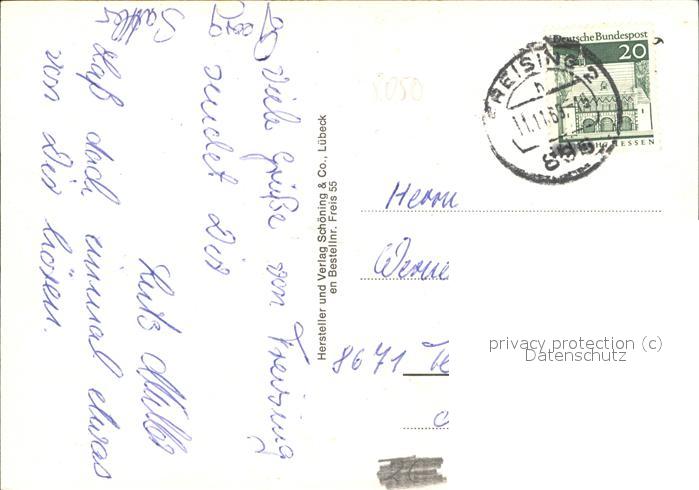 Viele Grüße von Freising
sendet Dir
Lutz Müller
Laß doch einmal etwas
von Dir hören.
Hersteller und Verlag Schöning & Co., Lübeck
en Bestellnr. Freis 55
8050
Deutsche Bundespost
20
HESSEN
FREISING 2
Herrn
Werne
8671
privacy protection (c)
Datenschutz